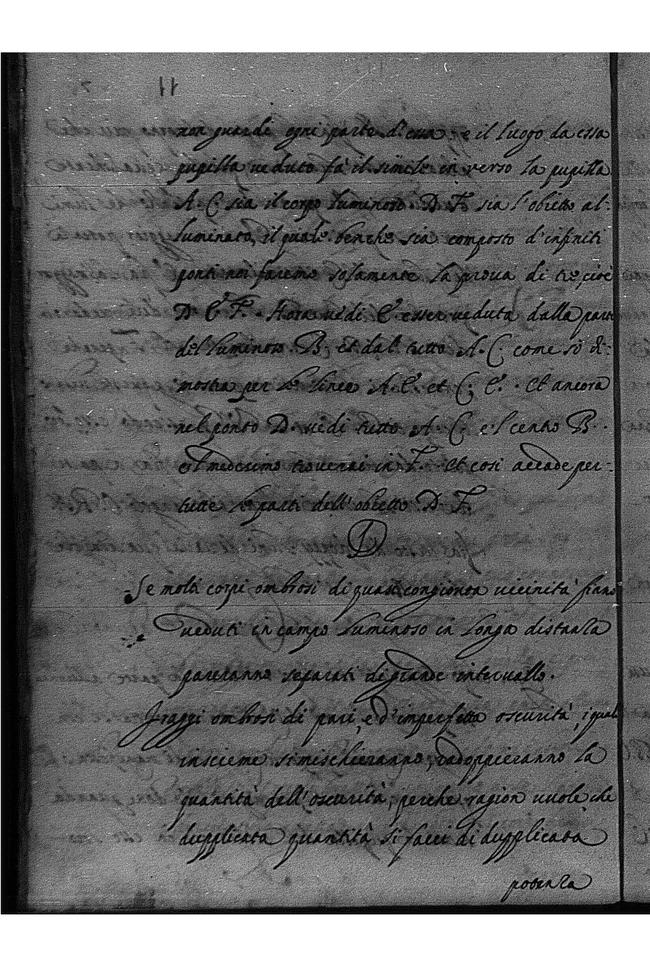 11
non guardi ogni parte d'essa, e il luogo da essa
pupilla veduto fà il simile in verso la pupilla
A. C. sia il corpo luminoso. D. F. sia l'obietto al-
luminato, il quale benche sia composto d'infiniti
ponti noi faremo solamente la prova di tre, cioè
D. E. F. Hora vedi E. esser veduta dalla parte
del luminoso. B, et dal tutto A. C. come si di-
mostra per le linee A. E. et C. E. et ancora
nel ponto D. vedi tutto A C. e 'l centro B.
e'l medesimo troverai in F. et così accade per
tutte le parti dell'obietto D. F.
D
Se molti corpi ombrosi di quasi congionta vicinità siano
veduti in campo luminoso in longa distanza
pareranno separati di grande intervallo.
I raggi ombrosi di pari, e d'imperfetta oscurità, i quali
insieme si mischieranno, radoppieranno la
quantità dell'oscurità, perche ragion vuole, che
dupplicata quantità si facci di dupplicata
potenza